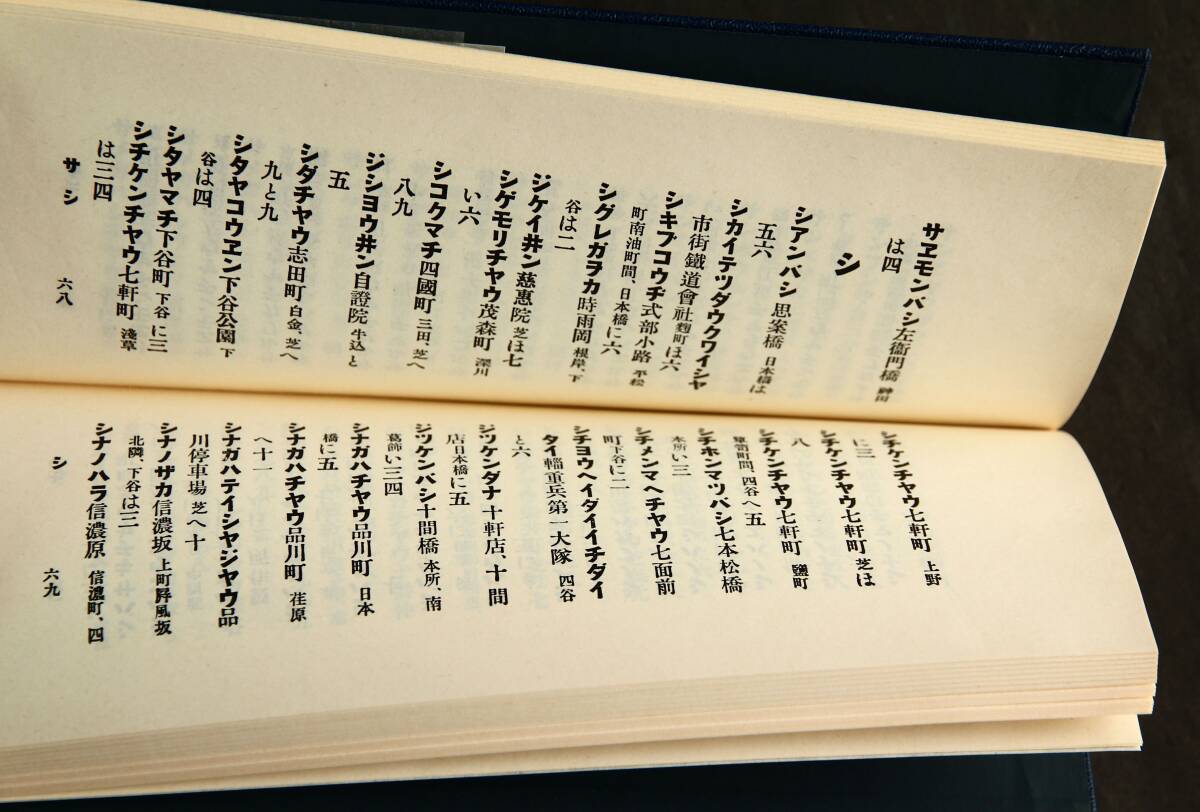 サヱモンバシ左衞門橋 神田
は四
シ
シアンバシ思案橋 日本橋は
五六
シカイテツダウクワイシヤ
市街鐵道會社麴町は六
シキブコウヂ式部小路 平松
町南油町間、日本橋に六
シグレガヲカ時雨岡 根岸、下
谷は二
ジケイ井ン慈惠院 芝は七
シゲモリチヤウ茂森町 深川
い六
シコクマチ四國町 三田、芝へ
八九
ジシヨウ井ン自證院 牛込と
五
シダチヤウ志田町 白金、芝へ
九と九
シタヤコウヱン下谷公園 下
谷は四
シタヤマチ下谷町 下谷に三
シチケンチヤウ七軒町 淺草
は三四
サシ 六八
シチケンチヤウ七軒町 上野
に三
シチケンチヤウ七軒町 芝は
八
シチケンチヤウ七軒町 鹽町
簞笥町間、四谷へ五
シチホンマツバシ七本松橋
本所い三
シチメンマヘチヤウ七面前
町下谷に二
シチヨウヘイダイイチダイ
タイ輜重兵第一大隊 四谷
と六
ジツケンダナ十軒店、十間
店日本橋に五
ジツケンバシ十間橋 本所、南
葛飾い三四
シナガハチヤウ品川町 日本
橋に五
シナガハチヤウ品川町 荏原
へ十一
シナガハテイシヤジヤウ品
川停車場 芝へ十
シナノザカ信濃坂 上町屛風坂
北隣、下谷は三
シナノハラ信濃原 信濃町、四
シ 六九